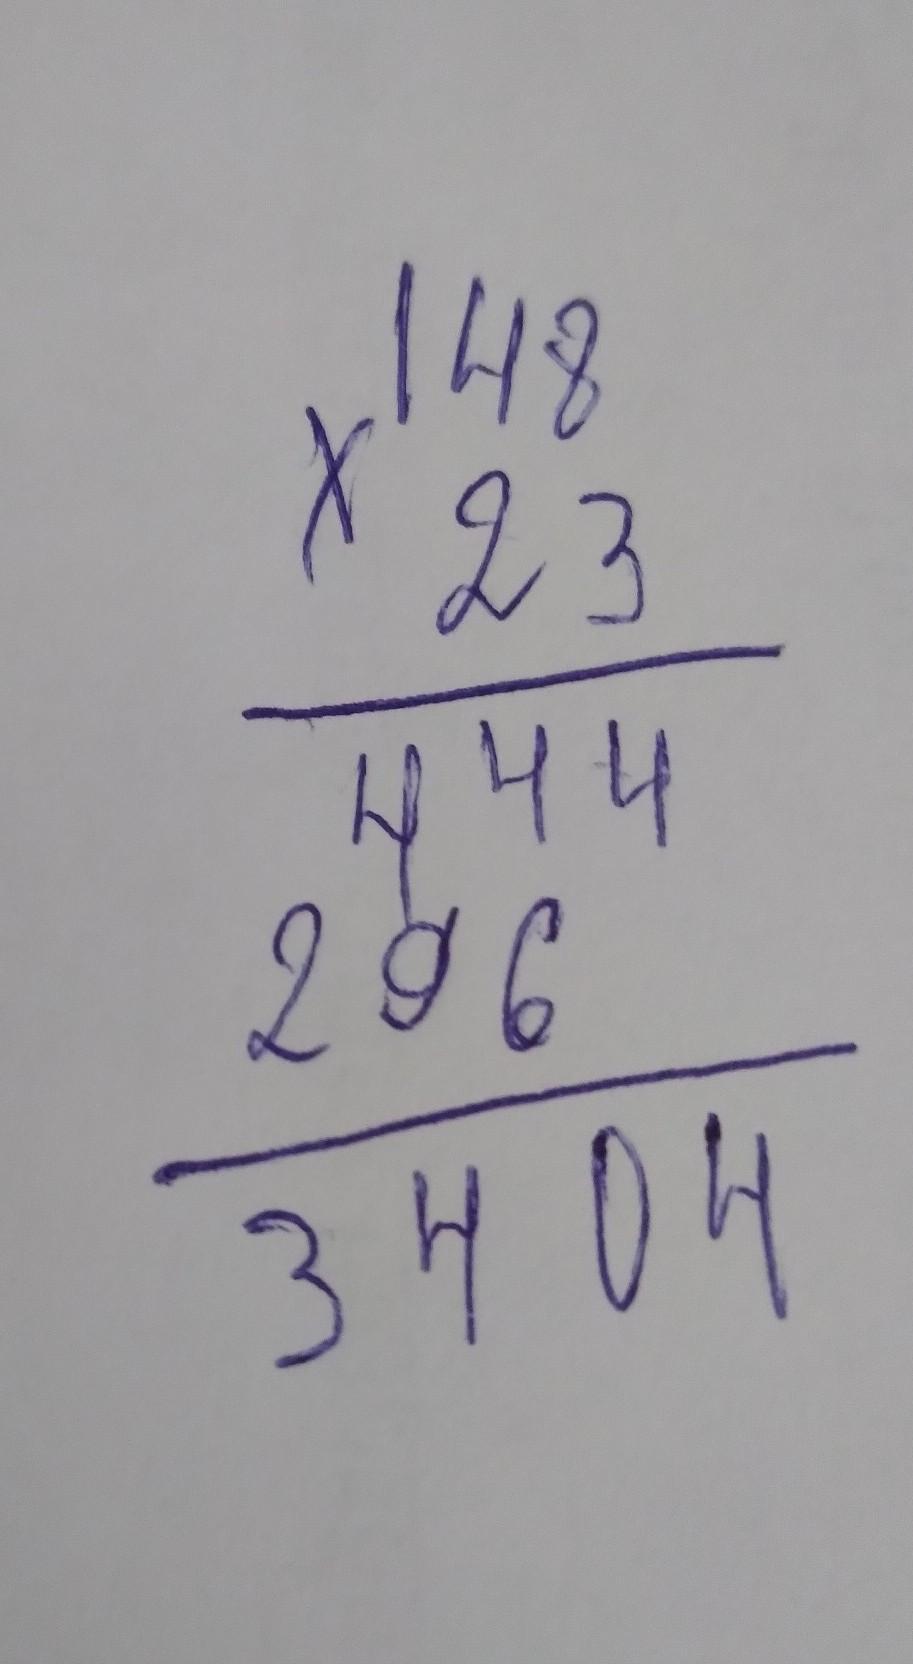 148
x
23
444
296
3404